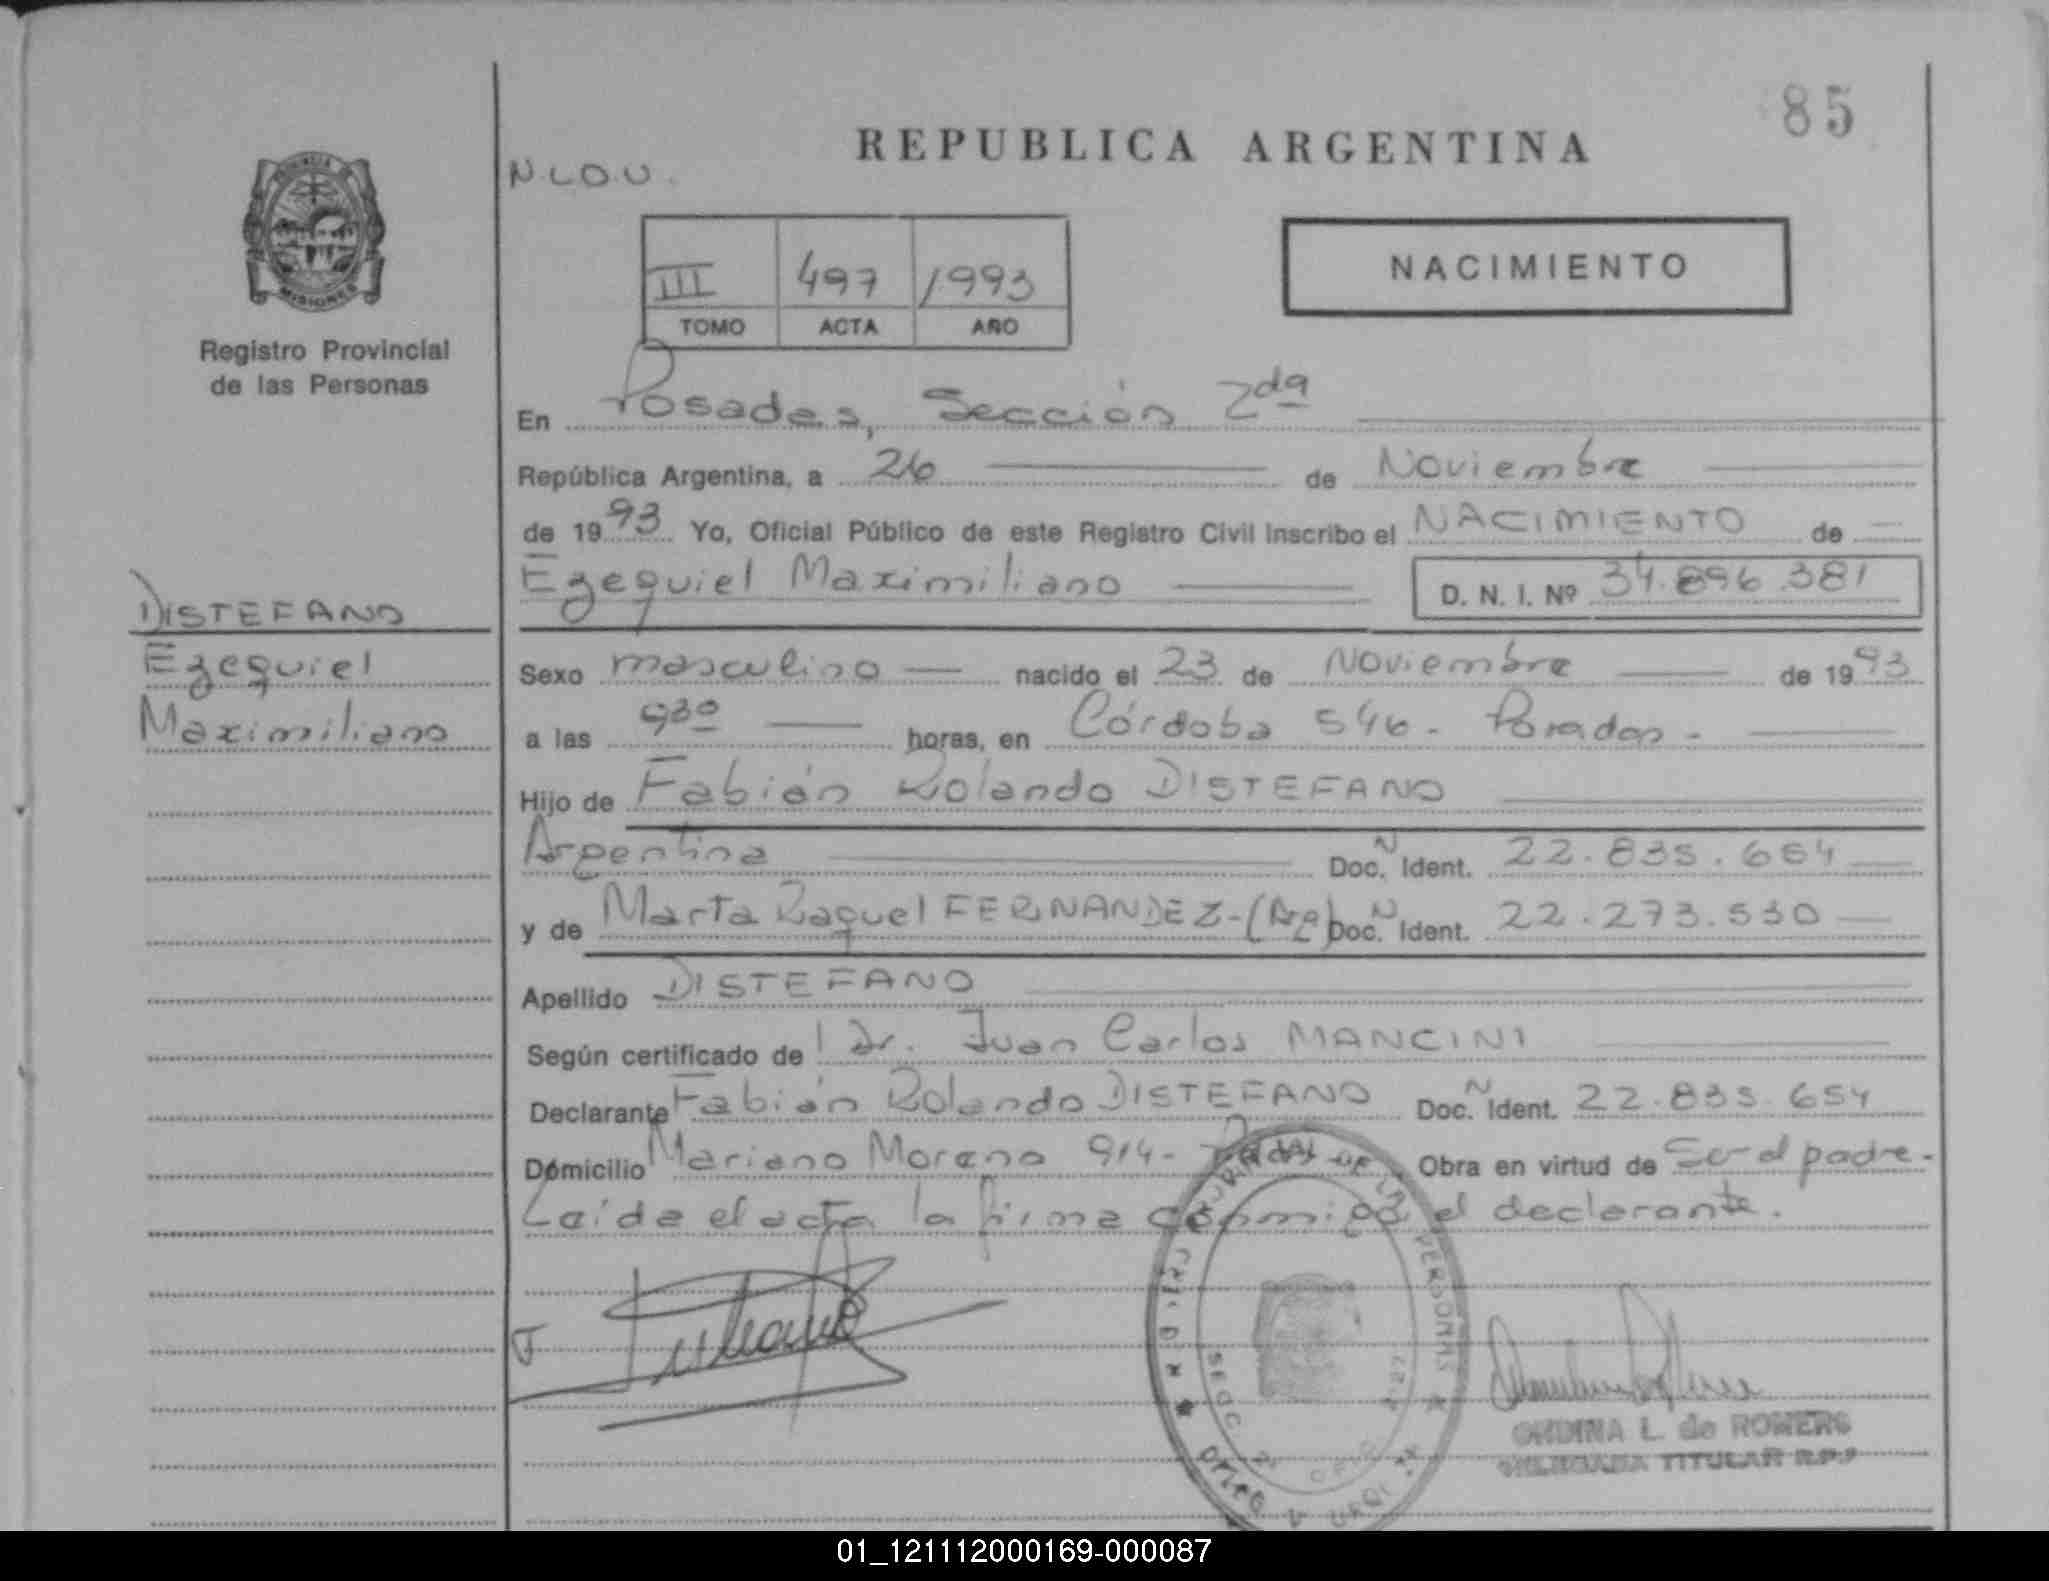 85
REPUBLICA ARGENTINA
N.L.O.U.
MISIONES
Registro Provincial
de las Personas
III 497 1993
TOMO ACTA AÑO
NACIMIENTO
En Posadas, Sección 2da
República Argentina, a 26 de Noviembre
de 1993 Yo, Oficial Público de este Registro Civil inscribo el NACIMIENTO de
Ezequiel Maximiliano D. N. I. Nº 34.896.381
DISTEFANO
Ezequiel
Maximiliano
Sexo masculino nacido el 23 de Noviembre de 1993
a las 930 horas, en Córdoba 546 - Posadas -
Hijo de Fabián Rolando DISTEFANO
Argentina Doc. N Ident. 22.835.654
y de Marta Raquel FERNANDEZ - (Arg) Doc. N Ident. 22.273.530
Apellido DISTEFANO
Según certificado de l Dr. Juan Carlos MANCINI
Declarante Fabián Rolando DISTEFANO Doc. N Ident. 22.835.654
Domicilio Mariano Moreno 914 - Obra en virtud de Ser el padre -
Leída el acta la firma conmigo el declarante.
ONDINA L. de ROMERO
DELEGADA TITULAR R.P.P
01_121112000169-000087